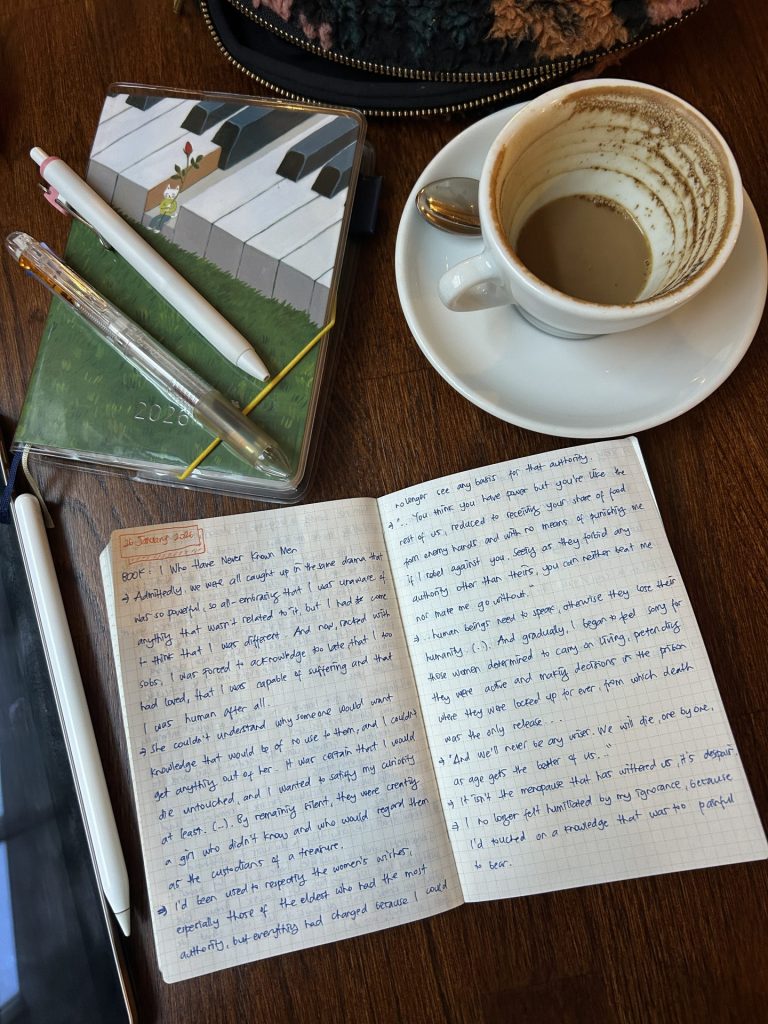 2026
26 January 2026
BOOK: I Who Have Never Known Men
→ Admittedly, we were all caught up in the same drama that
was so powerful, so all-embracing that I was unaware of
anything that wasn't related to it, but I had come
to think that I was different. And now, racked with
sobs, I was forced to acknowledge too late that I too
had loved, that I was capable of suffering and that
I was human after all.
→ She couldn't understand why someone would want
knowledge that would be of no use to them, and I couldn't
get anything out of her. It was certain that I would
die untouched, and I wanted to satisfy my curiosity
at least. (...). By remaining silent, they were creating
a girl who didn't know and who would regard them
as the custodians of a treasure.
→ I'd been used to respecting the women's wishes,
especially those of the eldest who had the most
authority, but everything had changed because I could
no longer see any basis for that authority.
→ "... You think you have power but you're like the
rest of us, reduced to receiving your share of food
from enemy hands and with no means of punishing me
if I rebel against you. Seeing as they forbid any
authority other than theirs, you can neither beat me
nor make me go without."
→ .. human beings need to speak, otherwise they lose their
humanity. (..). And gradually, I began to feel sorry for
those women determined to carry on living, pretending
they were active and making decisions in the prison
where they were locked up for ever, from which death
was the only release...
→ "And we'll never be any wiser. We will die one by one,
as age gets the better of us.."
→ It isn't the menopause that has withered us, it's despair.
→ I no longer felt humiliated by my ignorance, because
I'd touched on a knowledge that was too painful
to bear.